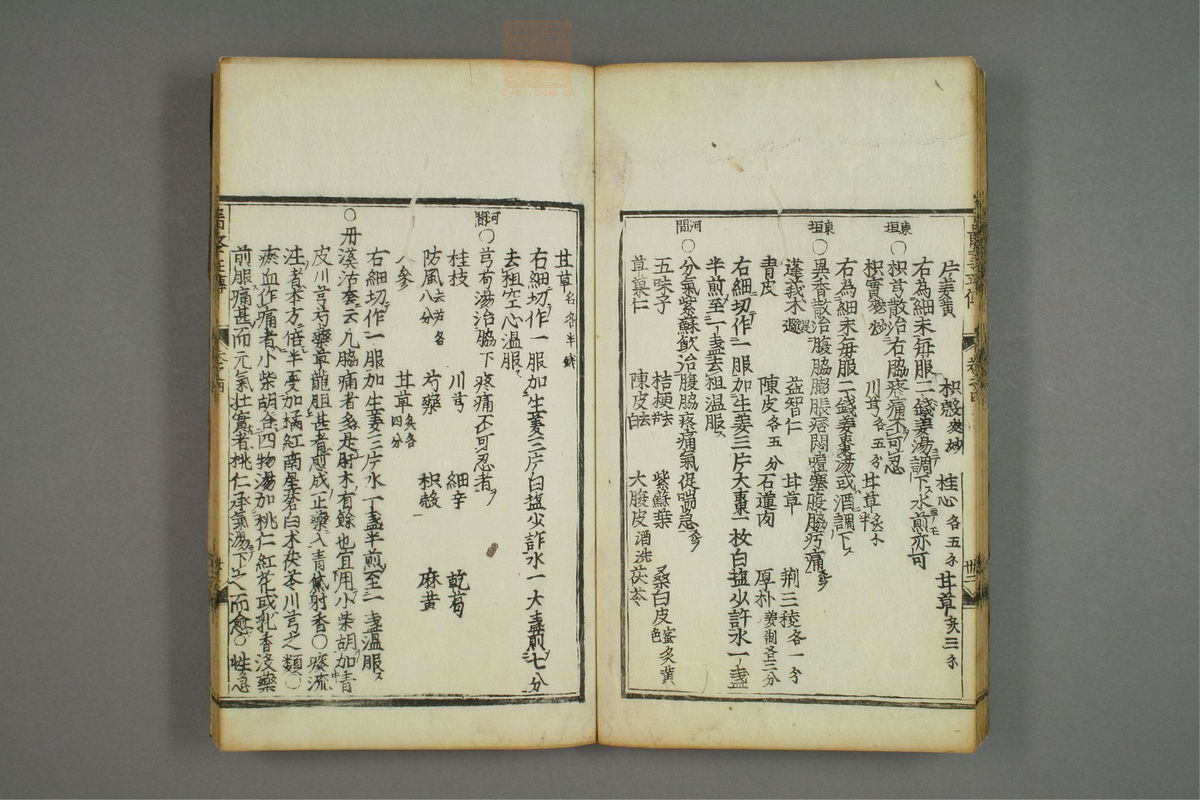 片姜黄 枳殻麥炒 桂心各五分 甘草炙三分
右為細末毎服二錢姜湯調下水煎亦可
東垣
○枳芎散治右脇疼痛不可忍
枳實麥炒 川芎各五分 甘草半炙
右為細末毎服二錢姜棗湯或酒調下
東垣
○異香散治腹脇膨脹痞悶噎塞腹脇疠痛
蓬莪术 益智仁 甘草 荆三稜各一分
青皮 陳皮各五分 石蓮肉 厚朴姜制各三分
右細切作一服加生姜三片大棗一枚白塩少許水一盞
半煎至一盞去粗温服
河間
○分氣紫蘇飲治腹脇疼痛氣促喘急
五味子 桔梗去 紫蘇葉 桑白皮蜜炙黄色
草菓仁 陳皮去白 大腹皮酒洗 茯苓
甘草 各半錢
右細切作一服加生姜三片白塩少許水一大盞煎七分
去粗空心温服
河間
○芎葛湯治脇下疼痛不可忍者
桂枝 川芎 細辛 乾葛
防風八分 芍藥 枳殻 麻黄
人參 甘草炙各四分
右細切作一服加生姜三片水一盞半煎至一盞温服
○丹溪活套云凡脇痛者多是肝木有餘也宜用小柴胡加青
皮川芎芍藥草龍胆甚者煎成正藥入青黛射香○痰流
注者本方倍半夏加橘紅南星蒼白术茯苓川芎之類○
瘀血作痛者小柴胡合四物湯加桃仁紅花或乳香没藥
前服痛甚而元氣壯實者桃仁承氣湯下之而愈○性急